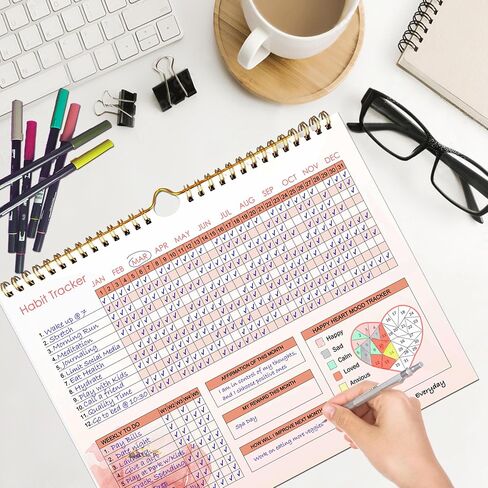 Habit Tracker
JAN FEB MAR APR MAY JUN JUL AUG SEP OCT NOV DEC
1 2 3 4 5 6 7 8 9 10 11 12 13 14 15 16 17 18 19 20 21 22 23 24 25 26 27 28 29 30 31
1. Wake up @ 7
2. Stretch
3. Morning Run
4. Meditation
5. Journaling
6. Limit Social Media
7. Eat Health
8. Hydrate
9. Play with Kids
10. Call a friend
11. Quality Time
12. Go to bed @ 10:30
WEEKLY TO DO W1 W2 W3 W4 W5
1. Pay Bills
2. Date night
3. Laundry
4. Give a
5. Play at Park w/Kids
6. Track Spending
AFFIRMATION OF THIS MONTH
I am in control of my thoughts,
and I choose positive ones
MY REWARD THIS MONTH
Spa Day
HOW WILL I IMPROVE NEXT MONTH
Work on eating more veggies
HAPPY HEART MOOD TRACKER
Happy
Sad
Calm
Loved
Excited
Anxious